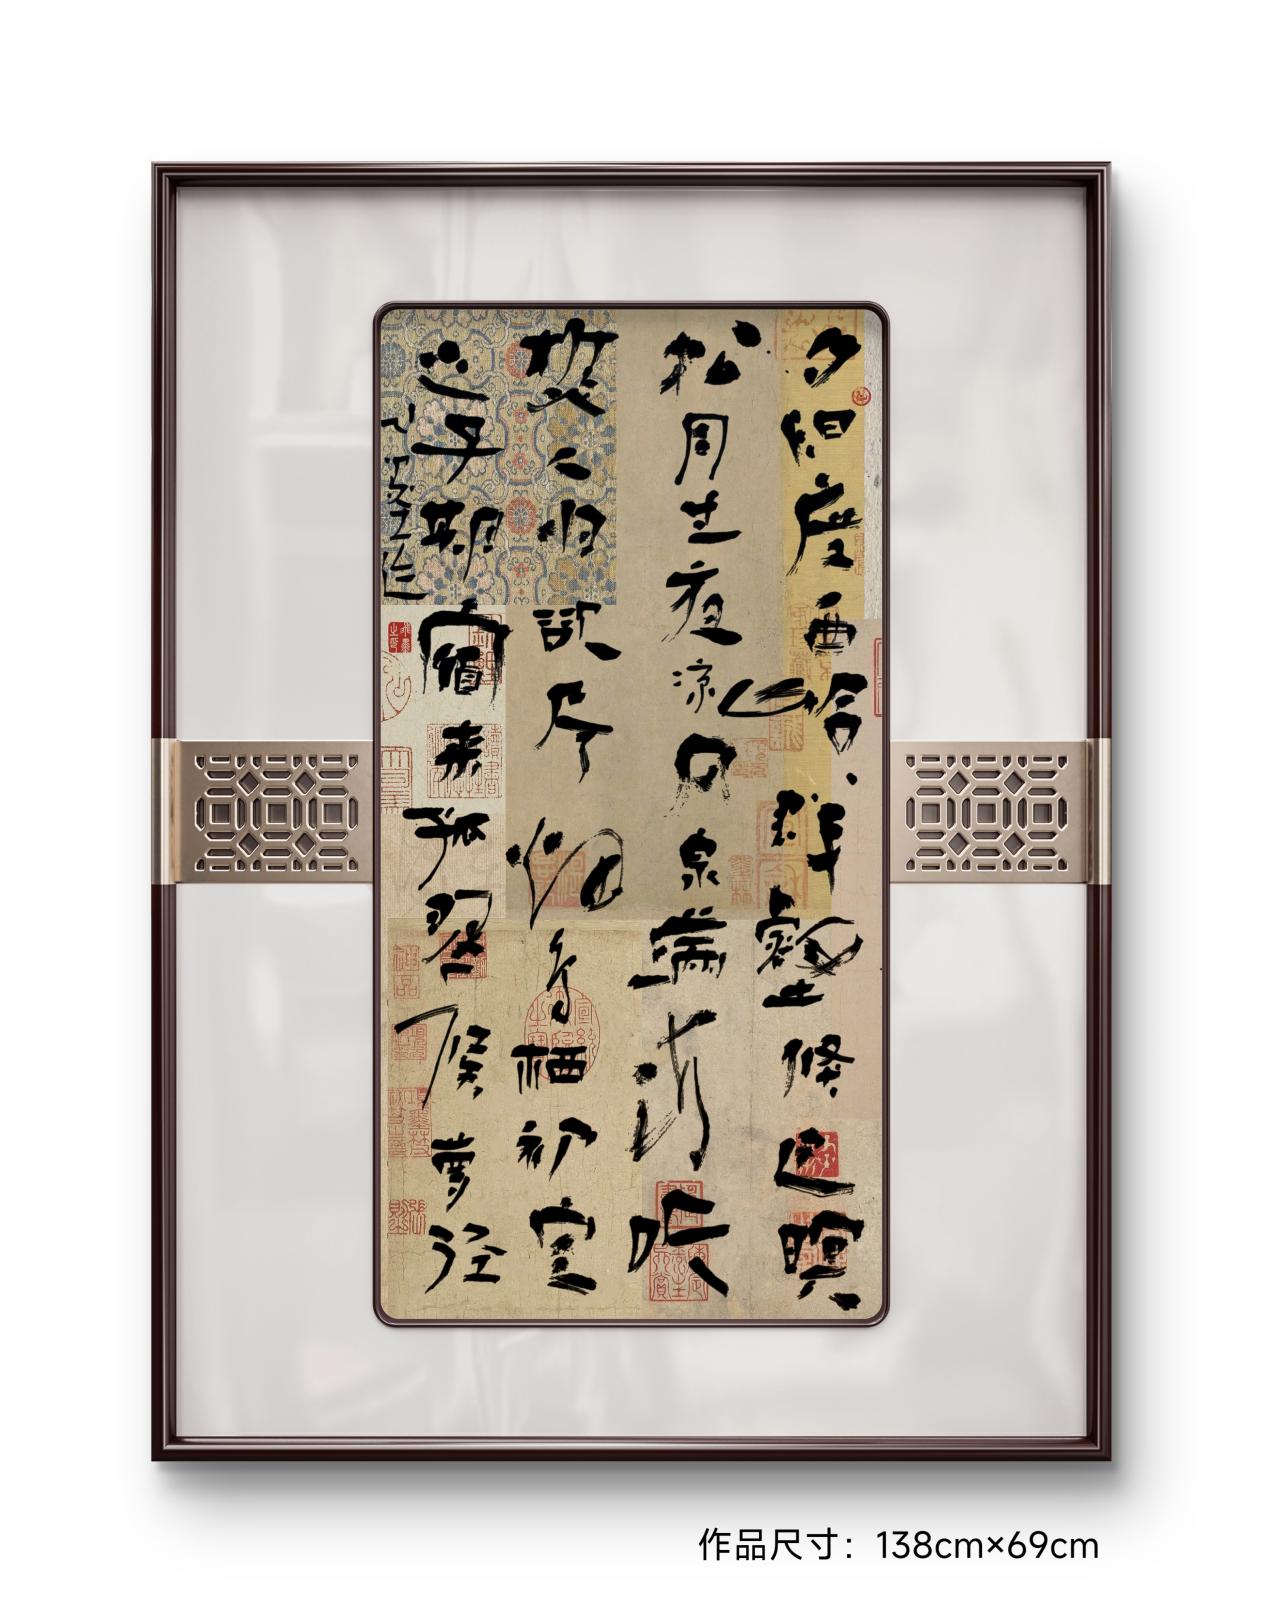 夕阳度西岭群壑倏已暝
松月生夜凉风泉满清听
樵人归欲尽烟鸟栖初定
之子期宿来孤琴候萝径
作品尺寸：138cm×69cm